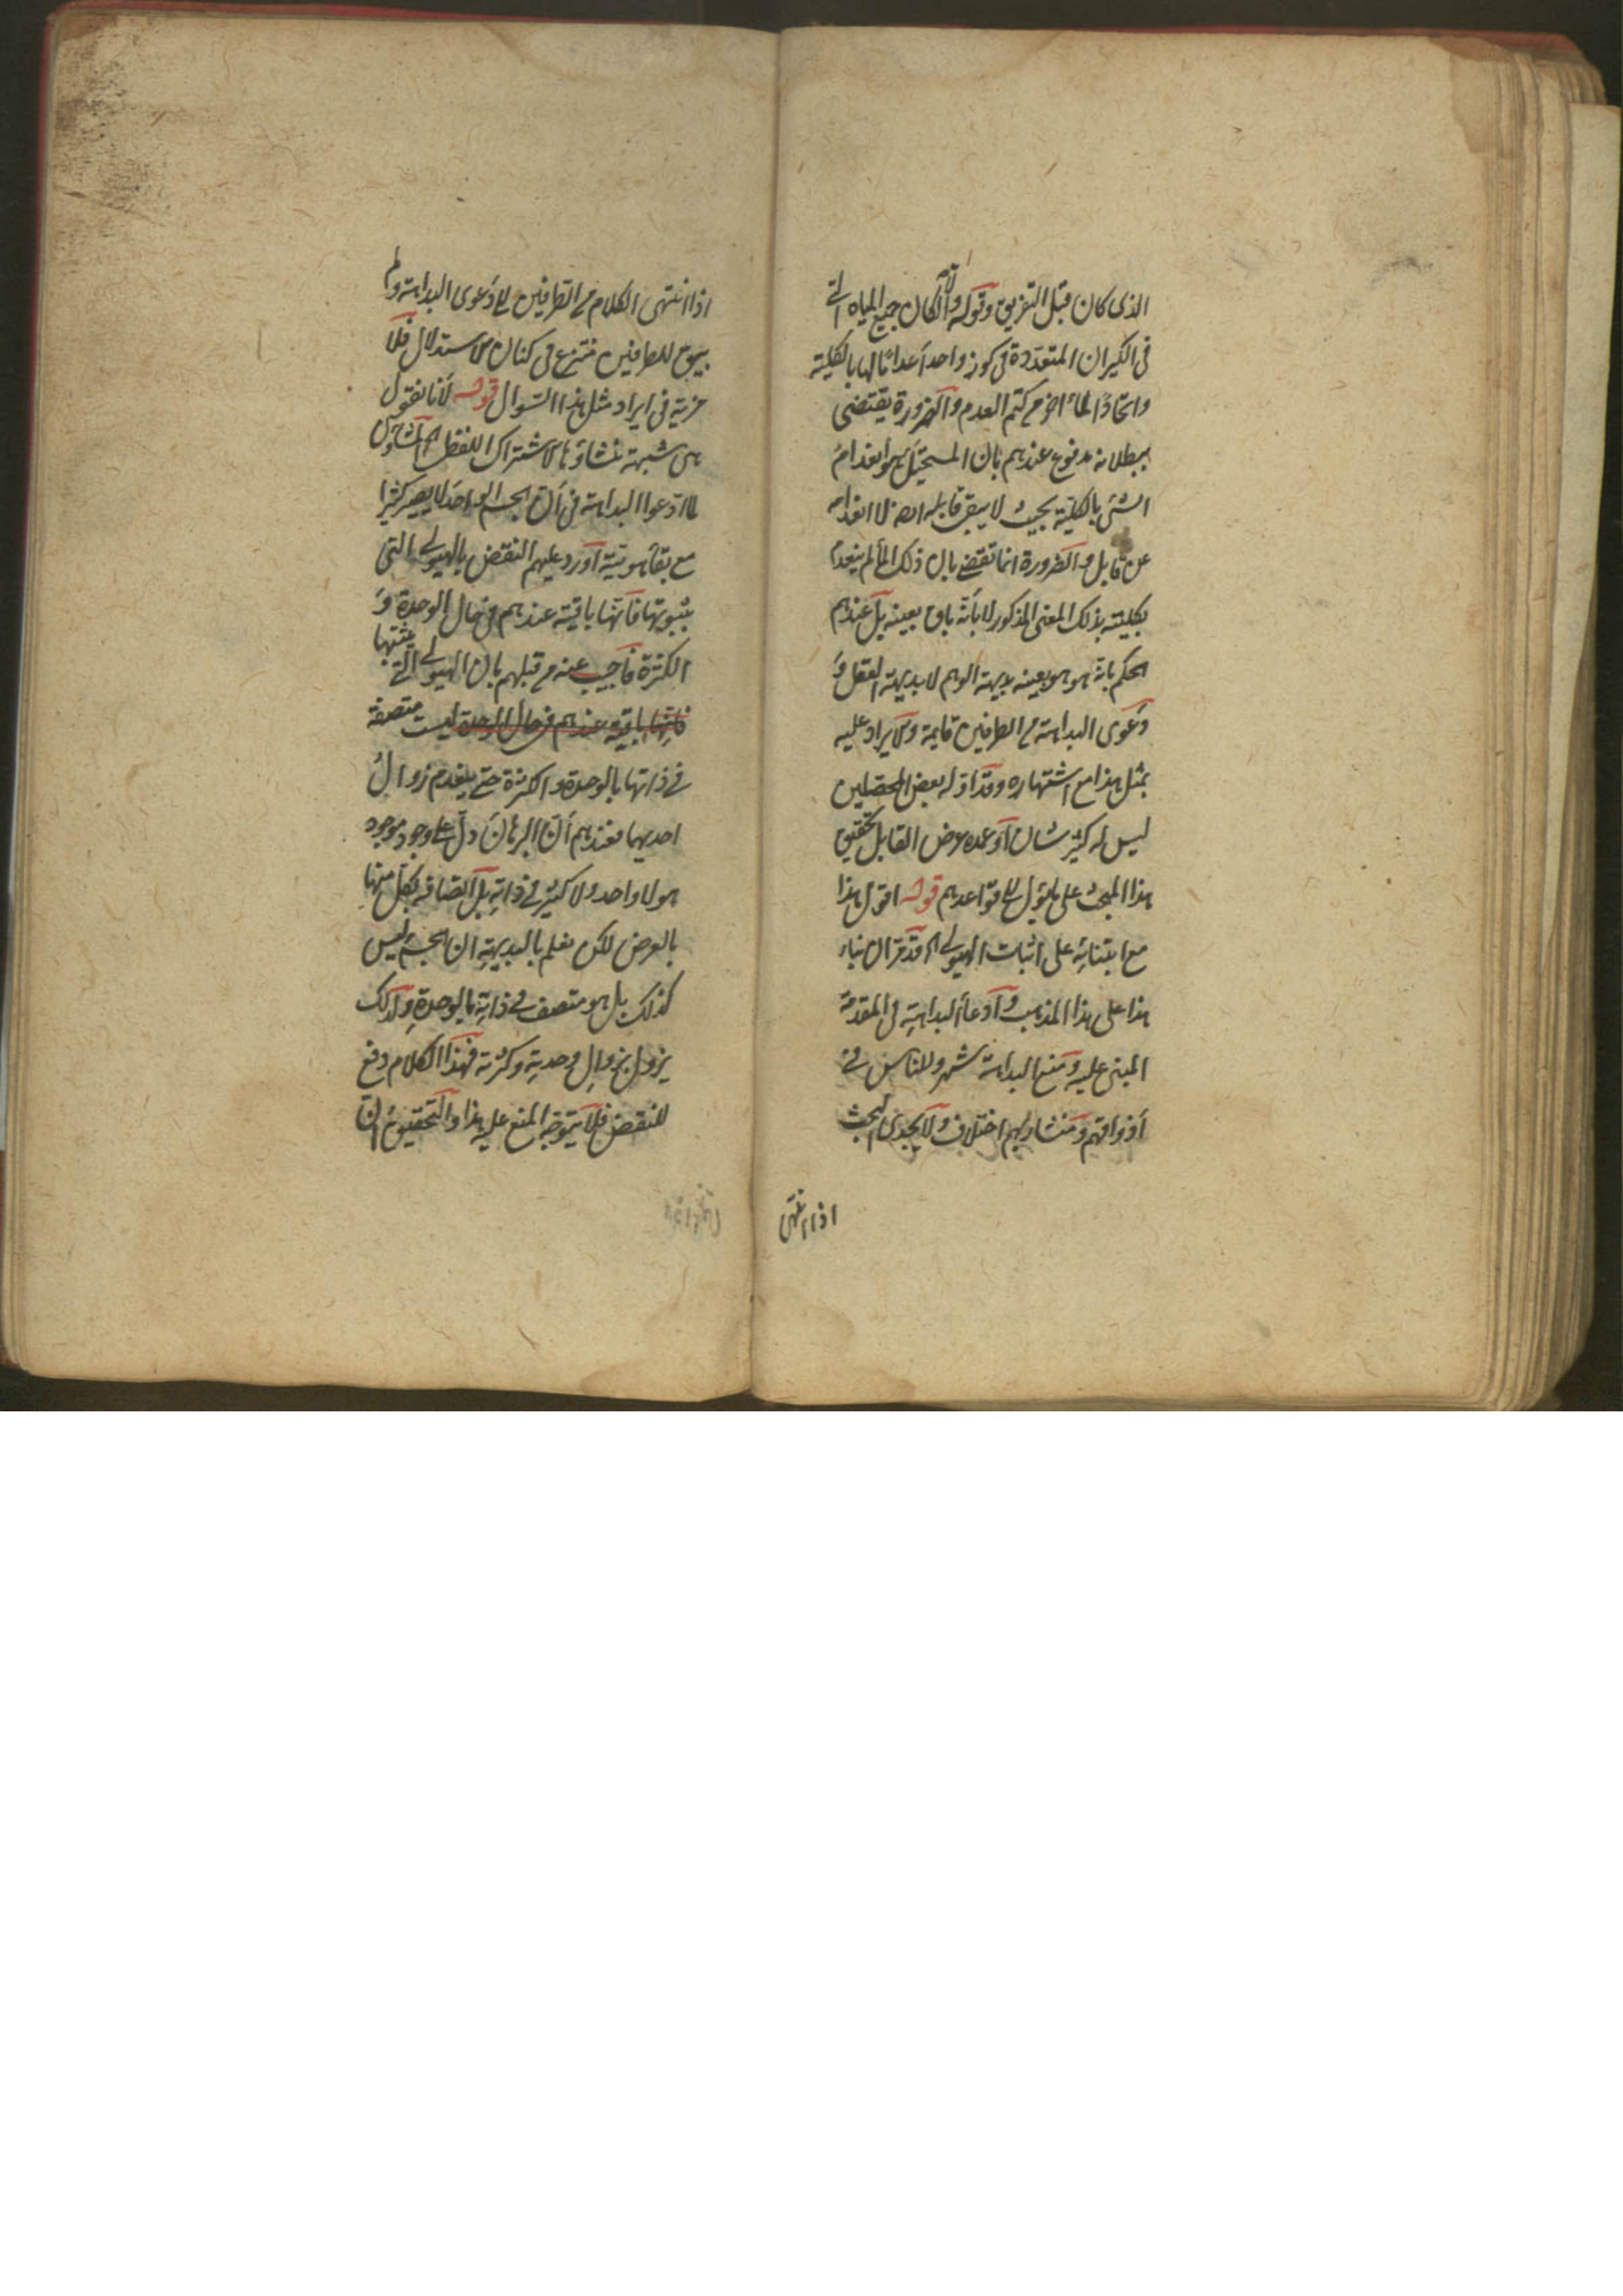 الذى كان قبل التفريق وقوله والا لكان جميع المياه التى
فى الكيزان المتعددة فى كوز واحد اعداما لها بالكلية
وايجادا لماء اخر من كتم العدم والضرورة يقتضى
ببطلانه مدفوع عندهم بان المستحيل هو انعدام
الشئ بالكلية بحيث لا يبقى قابله ايضا لا انعدامه
عن قابل والضرورة انما تقتضى بان ذلك الماء لم ينعدم
بكليته بذلك المعنى المذكور لا بانه باق بعينه بل عندهم
الحكم بانه هو هو بعينه بديهة الوهم لا بديهة العقل و
دعوى البداهة من الطرفين قايمة والايراد عليه
بمثل هذا مع اشتهاره وتداوله بعض المحصلين
ليس له كثير شان او عده عرض القابل تحقيق
هذا المبحث على قواعدهم قوله اقول هذا
مع ابتنائه على اثبات الهيولى اه قد مر ان بناء
هذا على هذا المذهب وادعاء البداهة فى المقدمة
المبنى عليه ومنع البداهة مشهور وللناس فى
اذواقهم ومشاربهم اختلاف ولا يجدى البحث
اذا انتهى
اذا انتهى الكلام من الطرفين الى دعوى البداهة ولم
يبق للطرفين منتزع فى كنان الاستدلال فلا
مزية فى ايراد مثل هذا السوال قوله لانا نقول
هى شبهة منشاؤها الاشتراك اللفظى اه
لما ادعوا البداهة فى ان الجسم الواحد لا يصير كثيرا
مع بقاء هويته اورد عليهم النقض بالهيولى التى
يثبتونها فانها باقية عندهم فى حال الوحدة و
الكثرة فاجيب عنه من قبلهم بان الهيولى التى يثبتها
فانها باقية عندهم فى حال الوحدة ليست متصفة
فى ذاتها بالوحدة والكثرة حتى ينعدم بزوال
احديهما فعندهم ان البرهان دل على وجود موجود
هو لا واحد ولا كثير فى ذاته بل اتصافه بكل منها
بالعرض لكن نعلم بالبديهة ان الجسم ليس
كذلك بل هو متصف فى ذاته بالوحدة ولذلك
يزول بزوال وحدته وكثرته فهذا الكلام دفع
للنقض فلا يتوجه المنع عليه هذا والتحقيق ان